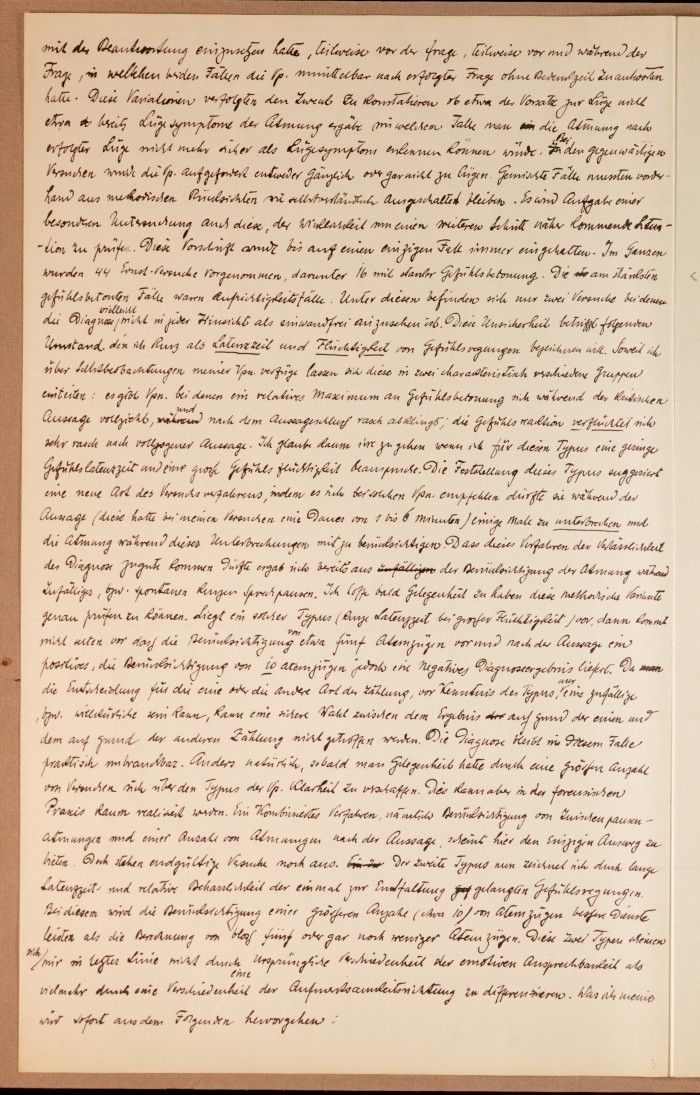 mit der Beantwortung einzusetzen hatte, teilweise vor der Frage, teilweise vor und während der
Frage, in welchen beiden Fällen die Vp. unmittelbar nach erfolgter Frage ohne Bedenkzeit zu antworten
hatte. Diese Variationen verfolgten den Zweck zu konstatieren ob etwa der Vorsatz zur Lüge nicht
etwa bereits Lügesymptome der Atmung ergäbe in welchem Falle man die Atmung nach
erfolgter Lüge nicht mehr sicher als Lügesymptom erkennen können würde. Bei den gegenwärtigen
Versuchen wurde die Vp. aufgefordert entweder gänzlich oder gar nicht zu lügen. Gemischte Fälle mussten vorder-
hand aus methodischen Rücksichten wie selbstverständlich ausgeschaltet bleiben. Es sind Aufgabe einer
besondern Untersuchung auch diese, der Wirklichkeit um einen weiteren Schritt näher kommende Situa-
-tion zu prüfen. Diese Vorschrift wurde bis auf einen einzigen Fall immer eingehalten. Im Ganzen
wurden 44 Ernst-Versuche vorgenommen, darunter 16 mit starker Gefühlsbetonung. Die am stärksten
gefühlsbetonten Fälle waren Aufrichtigkeitsfälle. Unter diesen befinden sich nur zwei Versuche bei denen
die Diagnose vielleicht nicht in jeder Hinsicht als einwandfrei anzusehen ist. Diese Unsicherheit betrifft folgenden
Umstand den ich kurz als Latenzzeit und Flüchtigkeit von Gefühlsregungen bezeichnen will. Soweit ich
über Selbstbeobachtungen meiner Vpn. verfüge lassen sich diese in zwei charakteristisch verschiedene Gruppen
einteilen: es gibt Vpn. bei denen ein relatives Maximum an Gefühlsbetonung sich während der kritischen
Aussage vollzieht, und nach dem Aussagenschluss rasch abklingt; die Gefühlsreaktion verflüchtet sich
sehr rasch nach vollzogener Aussage. Ich glaube kaum irre zu gehen wenn ich für diesen Typus eine geringe
Gefühlslatenzzeit und eine große Gefühlsflüchtigkeit beanspruche. Die Feststellung dieses Typus suggeriert
eine neue Art des Versuchsverfahrens, indem es sich bei solchen Vpn. empfehlen dürfte sie während der
Aussage (diese hatte bei meinen Versuchen eine Dauer von 1 bis 6 Minuten) einige Male zu unterbrechen und
die Atmung während dieser Unterbrechungen mit zu berücksichtigen. Dass dieses Verfahren der Verlässlichkeit
der Diagnose zugute kommen dürfte ergab sich bereits aus der Berücksichtigung der Atmung während
zufälliger, bzw. spontanen kurzen Sprachpausen. Ich hoffe bald Gelegenheit zu haben diese methodische Variante
genau prüfen zu können. Liegt ein solcher Typus (kurze Latenzzeit bei großer Flüchtigkeit) vor, dann kommt
nicht selten vor dass die Berücksichtigung von etwa fünf Atemzügen vor und nach der Aussage ein
positives, die Berücksichtigung von 10 Atemzügen jedoch ein negatives Diagnoseergebnis liefert. Da
die Entscheidung für die eine oder die andere Art der Zählung, vor Kenntnis des Typus, nur eine zufällige
, bzw. willkürliche sein kann, kann eine sichere Wahl zwischen dem Ergebnis auf grund der einen und
dem auf grund der anderen Zählung nicht getroffen werden. Die Diagnose bleibt in diesem Falle
praktisch unbrauchbar. Anders natürlich, sobald man Gelegenheit hatte durch eine größere Anzahl
von Versuchen sich über den Typus der Vp. Klarheit zu verschaffen. Dies kann aber in der forensischen
Praxis kaum realisiert werden. Ein kombiniertes Verfahren, nämlich Berücksichtigung von Zwischenpausen-
atmungen und einer Anzahl von Atmungen nach der Aussage, scheint hier den einzigen Ausweg zu
bieten. Doch stehen endgültige Versuche noch aus. Der zweite Typus nun zeichnet sich durch lange
Latenzzeit und relative Beharrlichkeit der einmal zur Entfaltung gelangten Gefühlsregungen.
Bei diesem wird die Berücksichtigung einer größeren Anzahl (etwa 10) von Atemzügen bessere Dienste
leisten als die Berechnung von bloß fünf oder gar noch weniger Atemzügen. Diese zwei Typen scheinen
sich mir in letzter Linie nicht durch ursprüngliche Verschiedenheit der emotiven Ansprechbarkeit als
vielmehr durch eine Verschiedenheit der Aufmerksamkeitsrichtung zu differenzieren. Was ich meine
wird sofort aus dem Folgenden hervorgehen: